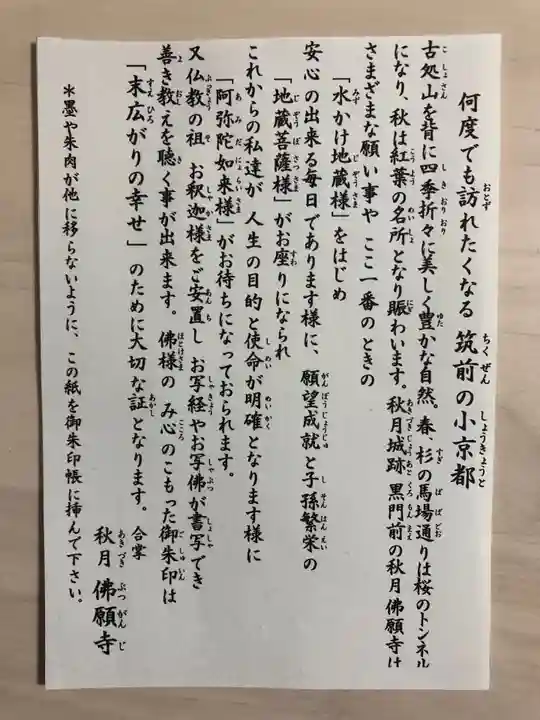 何度でも訪れたくなる 筑前の小京都
古処山を背に四季折々に美しく豊かな自然。春、杉の馬場通りは桜のトンネル
になり、秋は紅葉の名所となり賑わいます。秋月城跡 黒門前の秋月佛願寺は
さまざまな願い事や ここ一番のときの
「水かけ地蔵様」をはじめ
安心の出来る毎日であります様に、願望成就と子孫繁栄の
「地蔵菩薩様」がお座りになられ
これからの私達が 人生の目的と使命が明確となります様に
「阿弥陀如来様」がお待ちになっておられます。
又仏教の祖 お釈迦様をご安置し お写経やお写佛が書写でき
善き教えを聴く事が出来ます。佛様の み心のこもった御朱印は
「末広がりの幸せ」のために大切な証となります。 合掌
秋月 佛願寺
＊墨や朱肉が他に移らないように、この紙を御朱印帳に挿んで下さい。